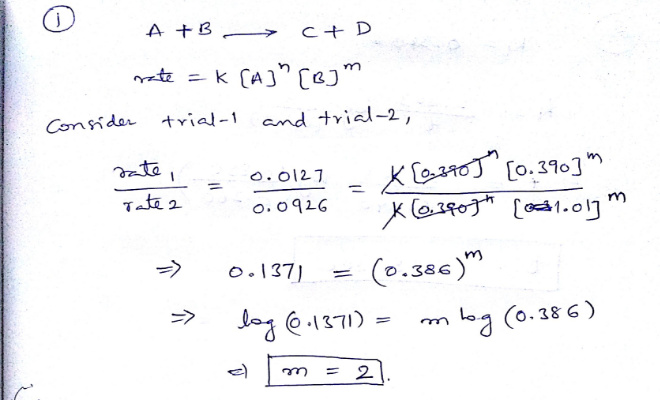 ① A + B ⟶ C + D
rate = K [A]ⁿ [B]ᵐ
Consider trial-1 and trial-2,
rate 1 / rate 2 = 0.0127 / 0.0926 = K [0.390]ⁿ [0.390]ᵐ / K [0.390]ⁿ [1.01]ᵐ
⇒ 0.1371 = (0.386)ᵐ
⇒ log (0.1371) = m log (0.386)
⇒ m = 2.